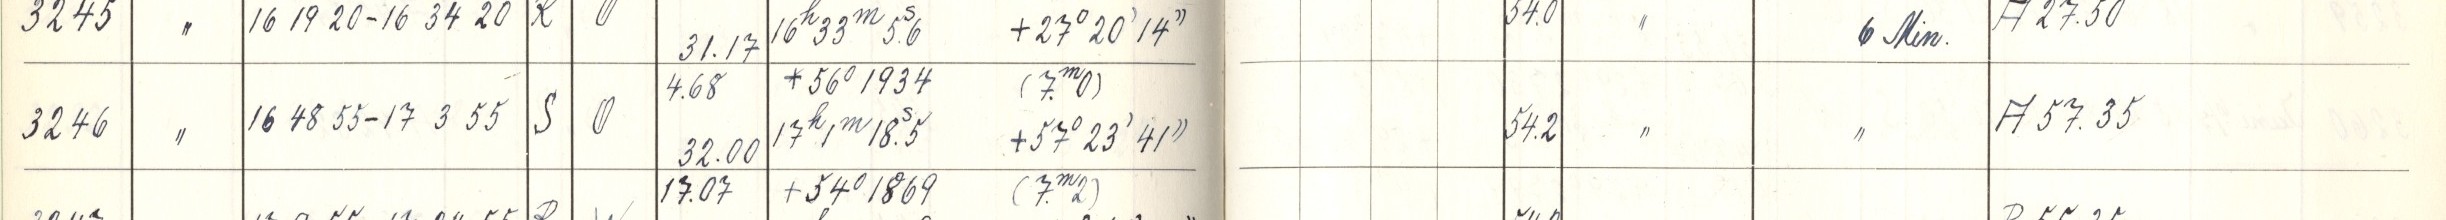 3245 " 16 19 20-16 34 20 R O 31.17 16h33m5s.6 +27° 20' 14" 54.0 " 6 Min. A 27.50
4.68 +56° 1934 (7.m0)
3246 " 16 48 55-17 3 55 S O 32.00 17h1m18s.5 +57° 23' 41" 54.2 " " A 57.35
17.07 +54° 1869 (7.m2)